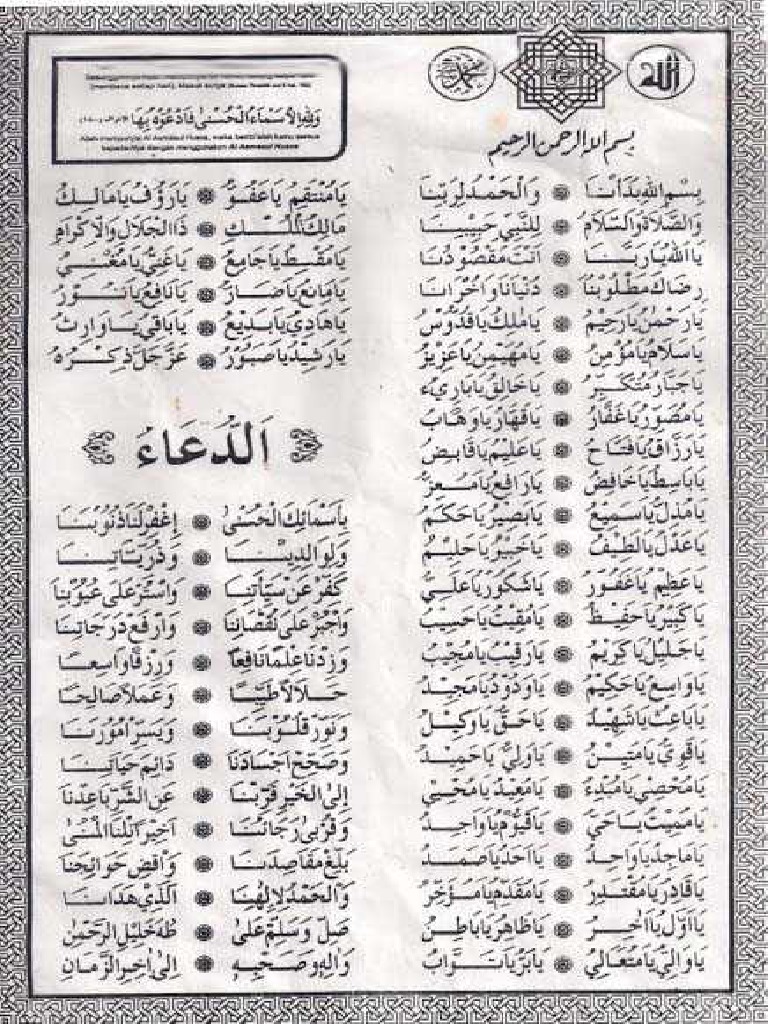 الله
محمد
بسم الله الرحمن الرحيم
وَلِلّٰهِ الْاَسْمَاءُ الْحُسْنٰى فَادْعُوْهُ بِهَا
بِسْمِ اللهِ بَدَأْنَا ۞ وَالْحَمْدُ لِرَبِّنَا
وَالصَّلَاةُ وَالسَّلَامُ ۞ لِلنَّبِيِّ حَبِيْبِنَا
يَا اَللهُ يَا رَبَّنَا ۞ اَنْتَ مَقْصُوْدُنَا
رِضَاكَ مَطْلُوْبُنَا ۞ دُنْيَانَا وَاُخْرَانَا
يَا رَحْمٰنُ يَا رَحِيْمُ ۞ يَا مَلِكُ يَا قُدُّوْسُ
يَا سَلَامُ يَا مُؤْمِنُ ۞ يَا مُهَيْمِنُ يَا عَزِيْزُ
يَا جَبَّارُ مُتَكَبِّرُ ۞ يَا خَالِقُ يَا بَارِيءُ
يَا مُصَوِّرُ يَا غَفَّارُ ۞ يَا قَهَّارُ يَا وَهَّابُ
يَا رَزَّاقُ يَا فَتَّاحُ ۞ يَا عَلِيْمُ يَا قَابِضُ
يَا بَاسِطُ يَا خَافِضُ ۞ يَا رَافِعُ يَا مُعِزُّ
يَا مُذِلُّ يَا سَمِيْعُ ۞ يَا بَصِيْرُ يَا حَكَمُ
يَا عَدْلُ يَا لَطِيْفُ ۞ يَا خَبِيْرُ يَا حَلِيْمُ
يَا عَظِيْمُ يَا غَفُوْرُ ۞ يَا شَكُوْرُ يَا عَلِيُّ
يَا كَبِيْرُ يَا حَفِيْظُ ۞ يَا مُقِيْتُ يَا حَسِيْبُ
يَا جَلِيْلُ يَا كَرِيْمُ ۞ يَا رَقِيْبُ يَا مُجِيْبُ
يَا وَاسِعُ يَا حَكِيْمُ ۞ يَا وَدُوْدُ يَا مَجِيْدُ
يَا بَاعِثُ يَا شَهِيْدُ ۞ يَا حَقُّ يَا وَكِيْلُ
يَا قَوِيُّ يَا مَتِيْنُ ۞ يَا وَلِيُّ يَا حَمِيْدُ
يَا مُحْصِي يَا مُبْدِءُ ۞ يَا مُعِيْدُ يَا مُحْيِي
يَا مُمِيْتُ يَا حَيُّ ۞ يَا قَيُّوْمُ يَا وَاجِدُ
يَا مَاجِدُ يَا وَاحِدُ ۞ يَا اَحَدُ يَا صَمَدُ
يَا قَادِرُ يَا مُقْتَدِرُ ۞ يَا مُقَدِّمُ يَا مُؤَخِّرُ
يَا اَوَّلُ يَا اٰخِرُ ۞ يَا ظَاهِرُ يَا بَاطِنُ
يَا وَالِيُ يَا مُتَعَالِيُ ۞ يَا بَرُّ يَا تَوَّابُ
يَا مُنْتَقِمُ يَا عَفُوُّ ۞ يَا رَؤُفُ يَا مَالِكُ
مَالِكُ الْمُلْكِ ۞ ذَا الْجَلَالِ وَالْاِكْرَامِ
يَا مُقْسِطُ يَا جَامِعُ ۞ يَا غَنِيُّ يَا مُغْنِيُ
يَا مَانِعُ يَا ضَارُّ ۞ يَا نَافِعُ يَا نُوْرُ
يَا هَادِيُ يَا بَدِيْعُ ۞ يَا بَاقِي يَا وَارِثُ
يَا رَشِيْدُ يَا صَبُوْرُ ۞ عَزَّ جَلَّ ذِكْرُهُ
اَلدُّعَاءُ
بِأَسْمَائِكَ الْحُسْنٰى ۞ اِغْفِرْ لَنَا ذُنُوْبَنَا
وَلِوَالِدِيْنَا ۞ وَذُرِّيَّاتِنَا
كَفِّرْ عَنْ سَيِّأَتِنَا ۞ وَاسْتُرْ عَلٰى عُيُوْبِنَا
وَاجْبُرْ عَلٰى نُقْصَانِنَا ۞ وَارْفَعْ دَرَجَاتِنَا
وَزِدْنَا عِلْمًا نَافِعًا ۞ وَرِزْقًا وَاسِعًا
حَلَالًا طَيِّبًا ۞ وَعَمَلًا صَالِحًا
وَنَوِّرْ قُلُوْبَنَا ۞ وَيَسِّرْ اُمُوْرَنَا
وَصَحِّحْ اَجْسَادَنَا ۞ دَائِمَ حَيَاتِنَا
إِلَى الْخَيْرِ قَرِّبْنَا ۞ عَنِ الشَّرِّ بَاعِدْنَا
وَقُرْبٰى رَجَائُنَا ۞ اَخِيْرًا نِلْنَا الْمُنٰى
بَلِّغْ مَقَاصِدَنَا ۞ وَاقْضِ حَوَائِجَنَا
وَالْحَمْدُ لِاِلٰهِنَا ۞ اَلَّذِيْ هَدَانَا
صَلِّ وَسَلِّمْ عَلٰى ۞ طٰهٰ خَلِيْلِ الرَّحْمٰنِ
وَاٰلِهِ وَصَحْبِهِ ۞ اِلٰى اٰخِرِ الزَّمَانِ